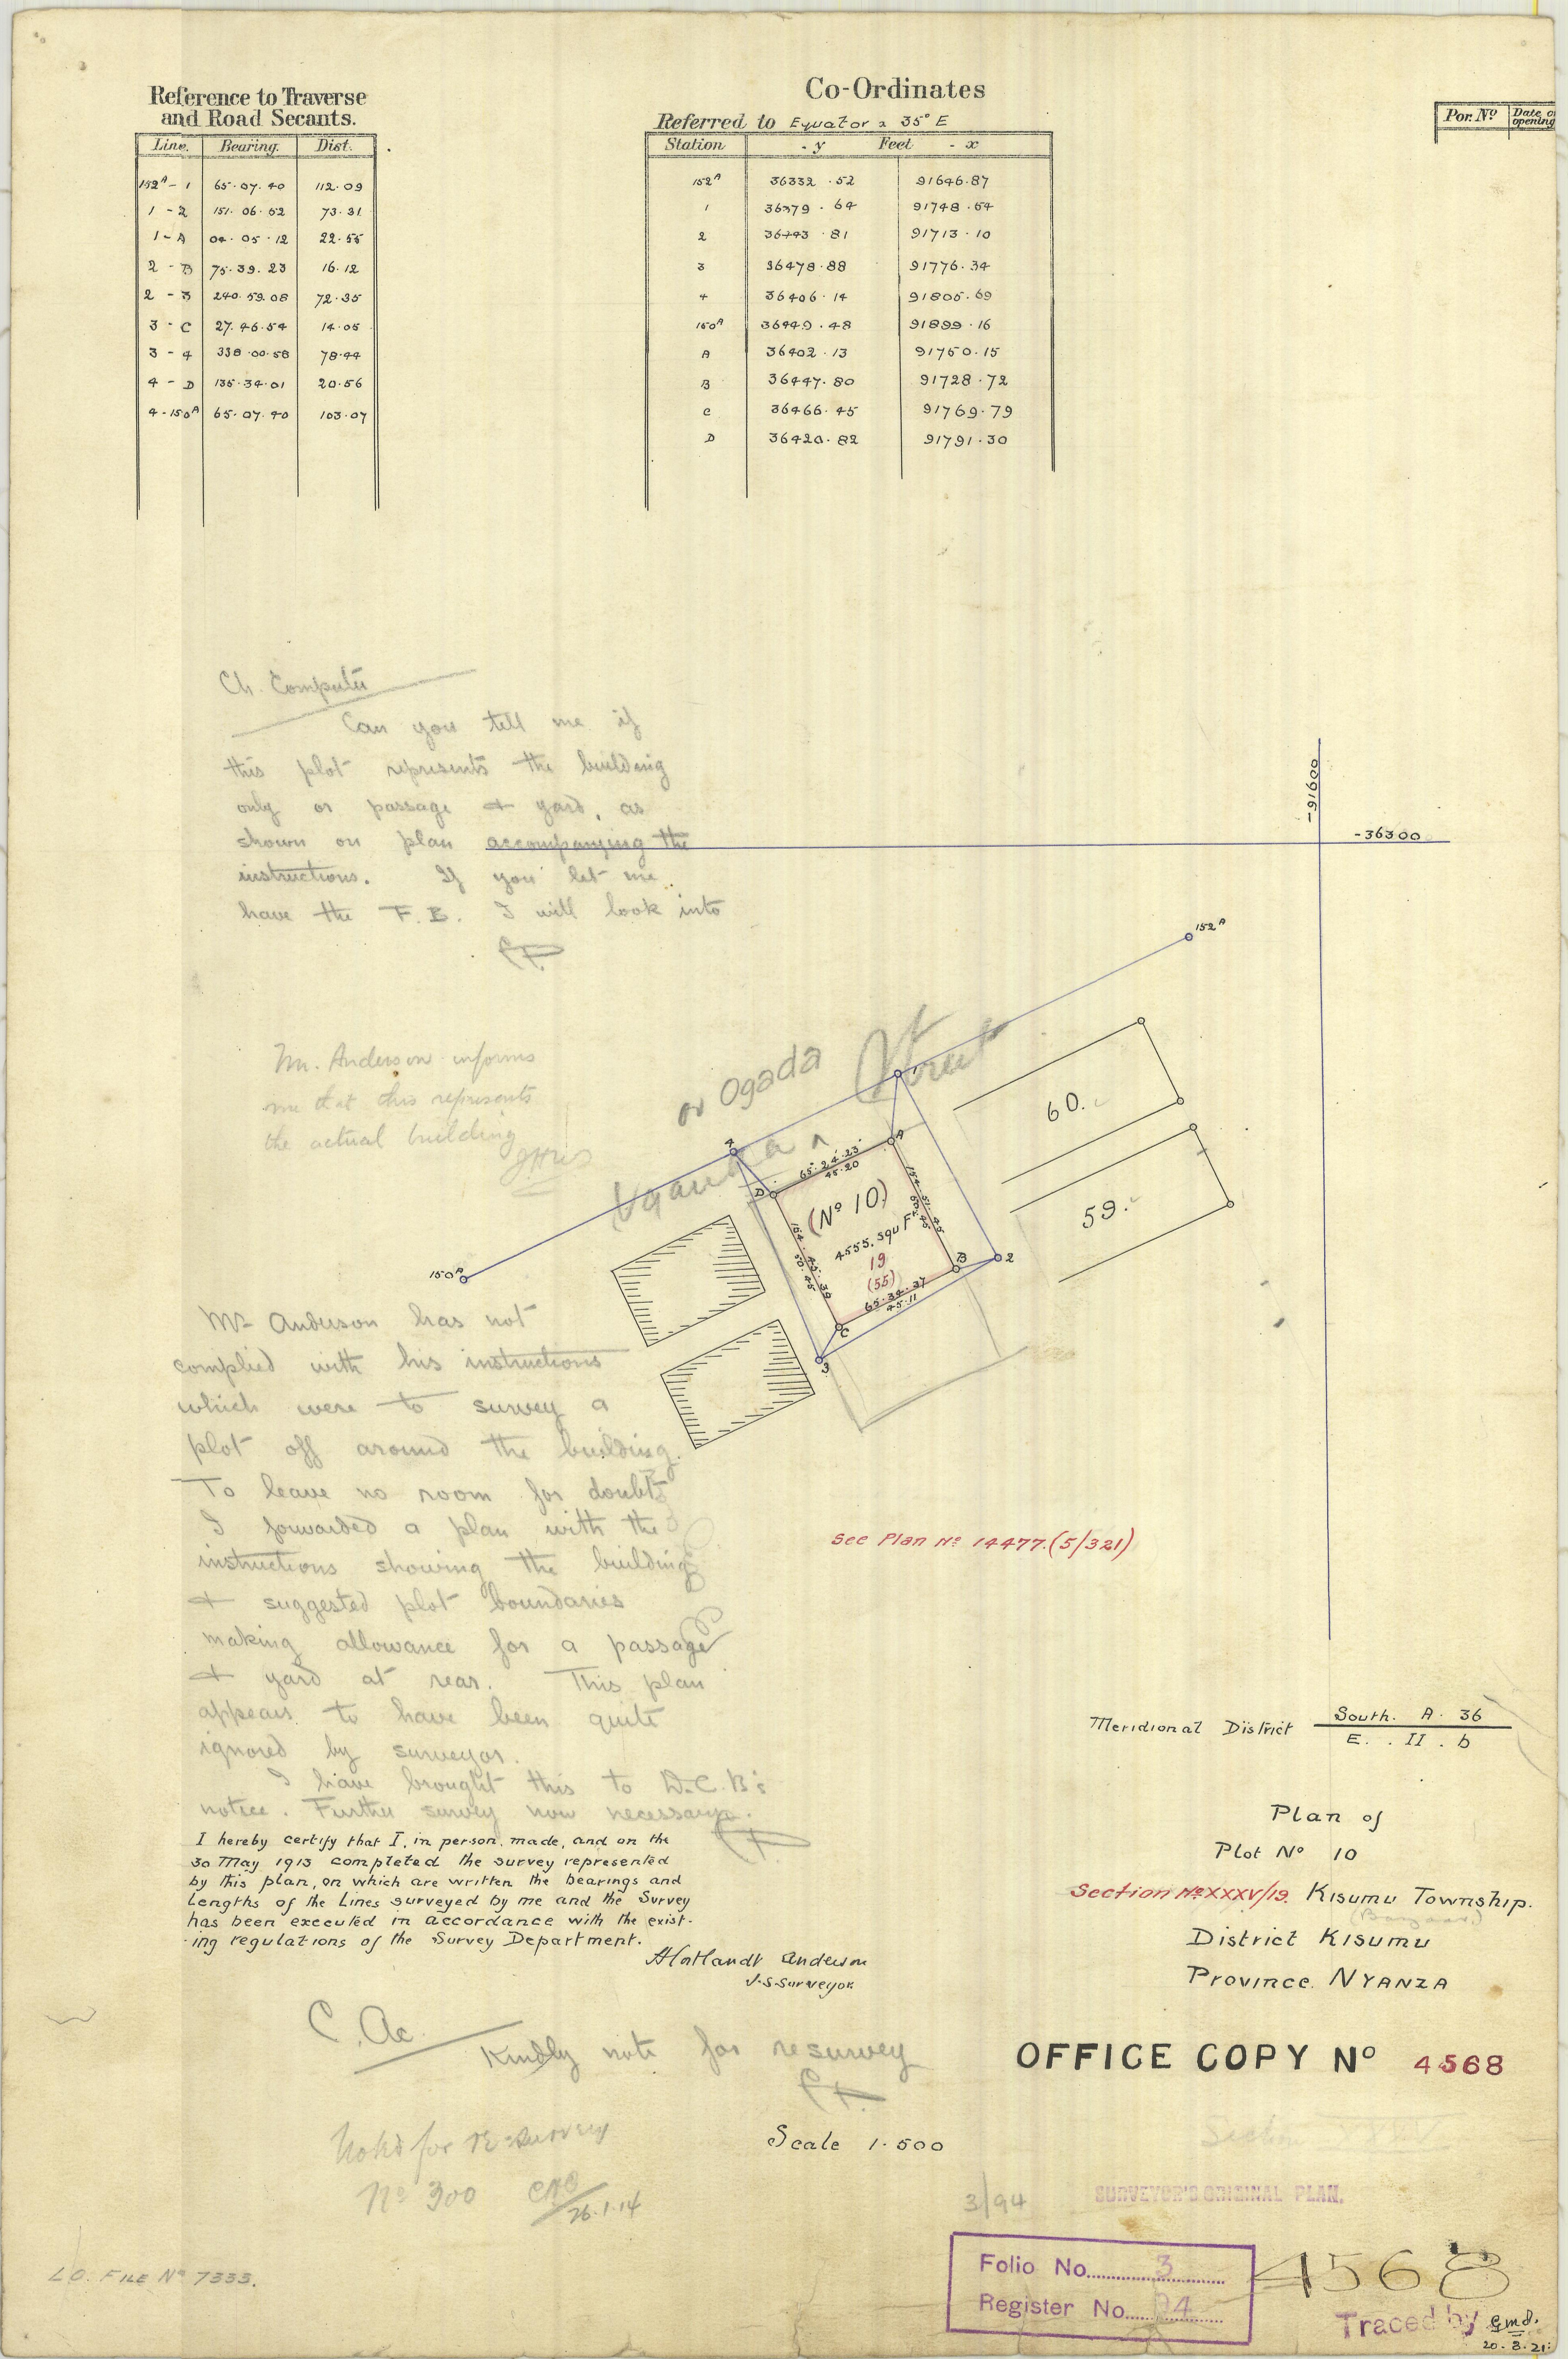 Reference to Traverse
and Road Secants.
Line. Bearing. Dist.
152ᴬ - 1 65.07.40 112.09
1 - 2 151.06.52 73.31
1 - A 04.05.12 22.55
2 - B 75.39.23 16.12
2 - 3 240.59.08 72.35
3 - C 27.46.54 14.05
3 - 4 338.00.58 78.44
4 - D 135.34.01 20.56
4 - 150ᴬ 65.07.40 103.07
Co-Ordinates
Referred to Equator & 35° E
Station - y Feet - x
152ᴬ 36332.52 91646.87
1 36379.64 91748.54
2 36443.81 91713.10
3 36478.88 91776.34
4 36406.14 91805.69
150ᴬ 36449.48 91899.16
A 36402.13 91750.15
B 36447.80 91728.72
C 36466.45 91769.79
D 36420.82 91791.30
Por. Nº Date o
opening
Ch. Computer
Can you tell me if
this plot represents the building
only or passage & yard, as
shown on plan accompanying the
instructions. If you let me
have the F.B. I will look into
-91600
-36300
Mr. Anderson informs
me that this represents
the actual building
or Ogada Street
Uganda
152ᴬ
150ᴬ
4
A
D
B
2
C
3
65.24.23
45.20
(Nº 10)
4555. Squ Ft.
19
(55)
65.34.37
45.11
60.
59.
Mr Anderson has not
complied with his instructions
which were to survey a
plot off around the building.
To leave no room for doubt
I forwarded a plan with the
instructions showing the building
& suggested plot boundaries
making allowance for a passage
& yard at rear. This plan
appears to have been quite
ignored by surveyor.
I have brought this to D.C.B's
notice. Further survey now necessary.
See Plan Nº 14477.(5/321)
I hereby certify that I, in person, made, and on the
30 May 1913 completed the survey represented
by this plan, on which are written the bearings and
Lengths of the Lines surveyed by me and the Survey
has been executed in accordance with the exist-
ing regulations of the Survey Department.
Anderson
Surveyor
Meridional District South. A. 36
E. II. b
Plan of
Plot Nº 10
Section Nº XXXV/19. Kisumu Township.
(Bazaar)
District Kisumu
Province. Nyanza
C. Ac.
Kindly note for resurvey
OFFICE COPY Nº 4568
Scale 1.500
Noted for Re-survey
Nº 300
26.1.14
Section XXXV
3/94
SURVEYOR'S ORIGINAL PLAN.
Folio No. 3
Register No. 94
4568
L.O. File Nº 7333.
Traced by gmd.
20.8.21.